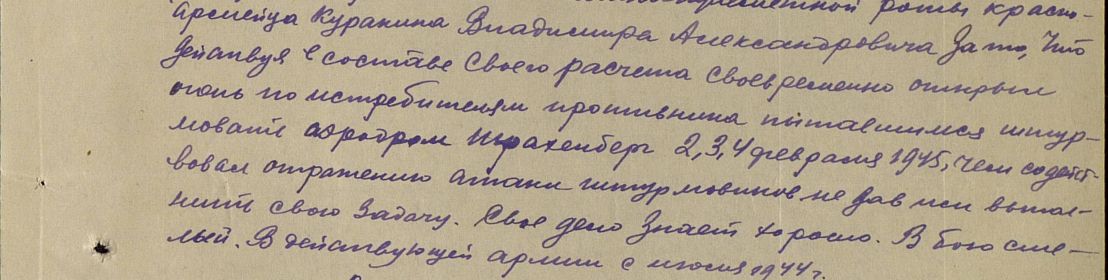 роты красно-
армейца Куранина Владимира Александровича За то, что
действуя в составе своего расчета своевременно открыл
огонь по истребителям противника пытавшимся штур-
мовать аэродром Трахенберг 2,3,4 февраля 1945, чем содейст-
вовал отражению атаки штурмовиков не дав им выпол-
нить свою задачу. Свое дело знает хорошо. В бою сме-
лый. В действующей армии с июля 1944 г.